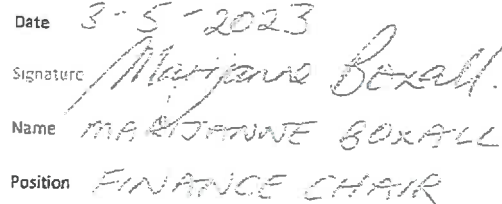 Date 3-5-2023
Signature Marijanne Boxall.
Name MARIJANNE BOXALL
Position FINANCE CHAIR